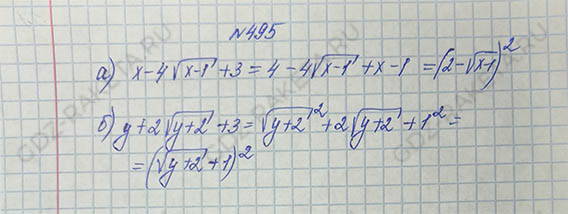 №495
а) x-4√(x-1)+3=4-4√(x-1)+x-1=(2-√(x-1))²
б) y+2√(y+2)+3=√(y+2)²+2√(y+2)+1²=
=(√(y+2)+1)²
GDZ-RAKETA.RU